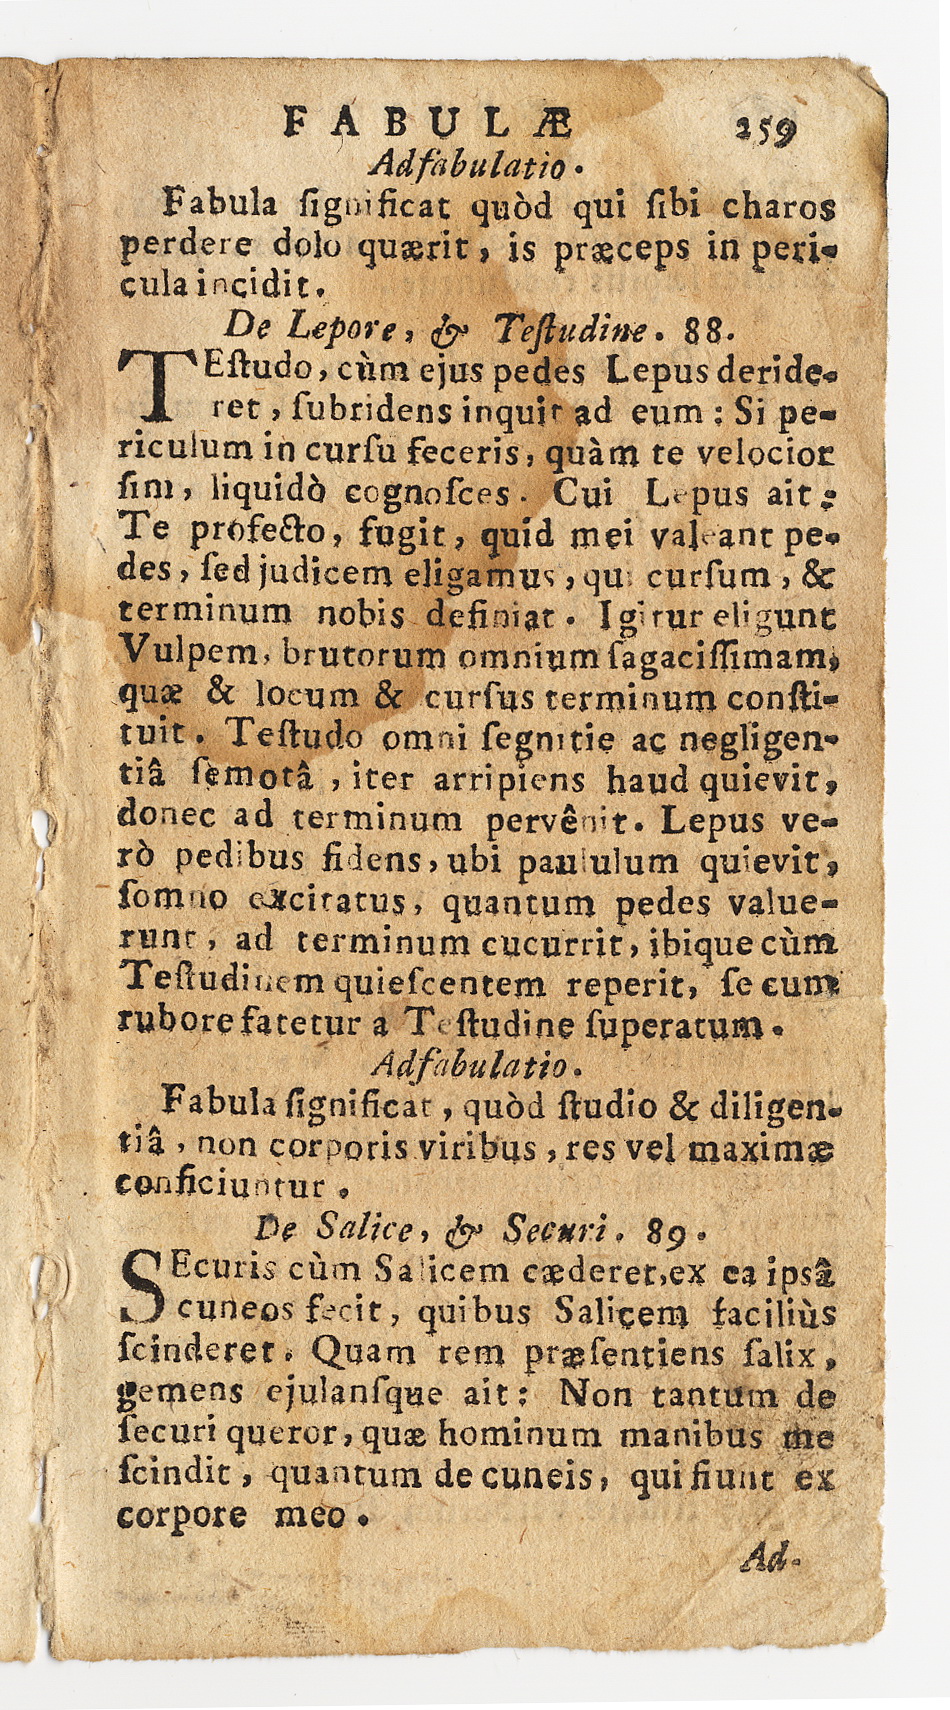 FABULÆ 259
Adfabulatio.
Fabula ſignificat quòd qui ſibi charos
perdere dolo quærit, is præceps in peri-
cula incidit.
De Lepore, & Teſtudine. 88.
TEſtudo, cùm ejus pedes Lepus deride-
ret, ſubridens inquit ad eum: Si pe-
riculum in curſu feceris, quàm te velocior
ſim, liquidò cognoſces. Cui Lepus ait:
Te profecto, fugit, quid mei valeant pe-
des, ſed judicem eligamus, qui curſum, &
terminum nobis definiat. Igitur eligunt
Vulpem, brutorum omnium ſagaciſſimam,
quæ & locum & curſus terminum conſti-
tuit. Teſtudo omni ſegnitie ac negligen-
tiâ ſemotâ, iter arripiens haud quievit,
donec ad terminum pervênit. Lepus ve-
rò pedibus fidens, ubi paululum quievit,
ſomno excitatus, quantum pedes value-
runt, ad terminum cucurrit, ibique cùm
Teſtudinem quieſcentem reperit, ſe cum
rubore fatetur a Teſtudine ſuperatum.
Adfabulatio.
Fabula ſignificat, quòd ſtudio & diligen-
tiâ, non corporis viribus, res vel maximæ
conficiuntur.
De Salice, & Securi. 89.
SEcuris cùm Salicem cæderet, ex ea ipsâ
cuneos fecit, quibus Salicem faciliùs
ſcinderet. Quam rem præſentiens ſalix,
gemens ejulanſque ait: Non tantum de
ſecuri queror, quæ hominum manibus me
ſcindit, quantum de cuneis, qui fiunt ex
corpore meo.
Ad-